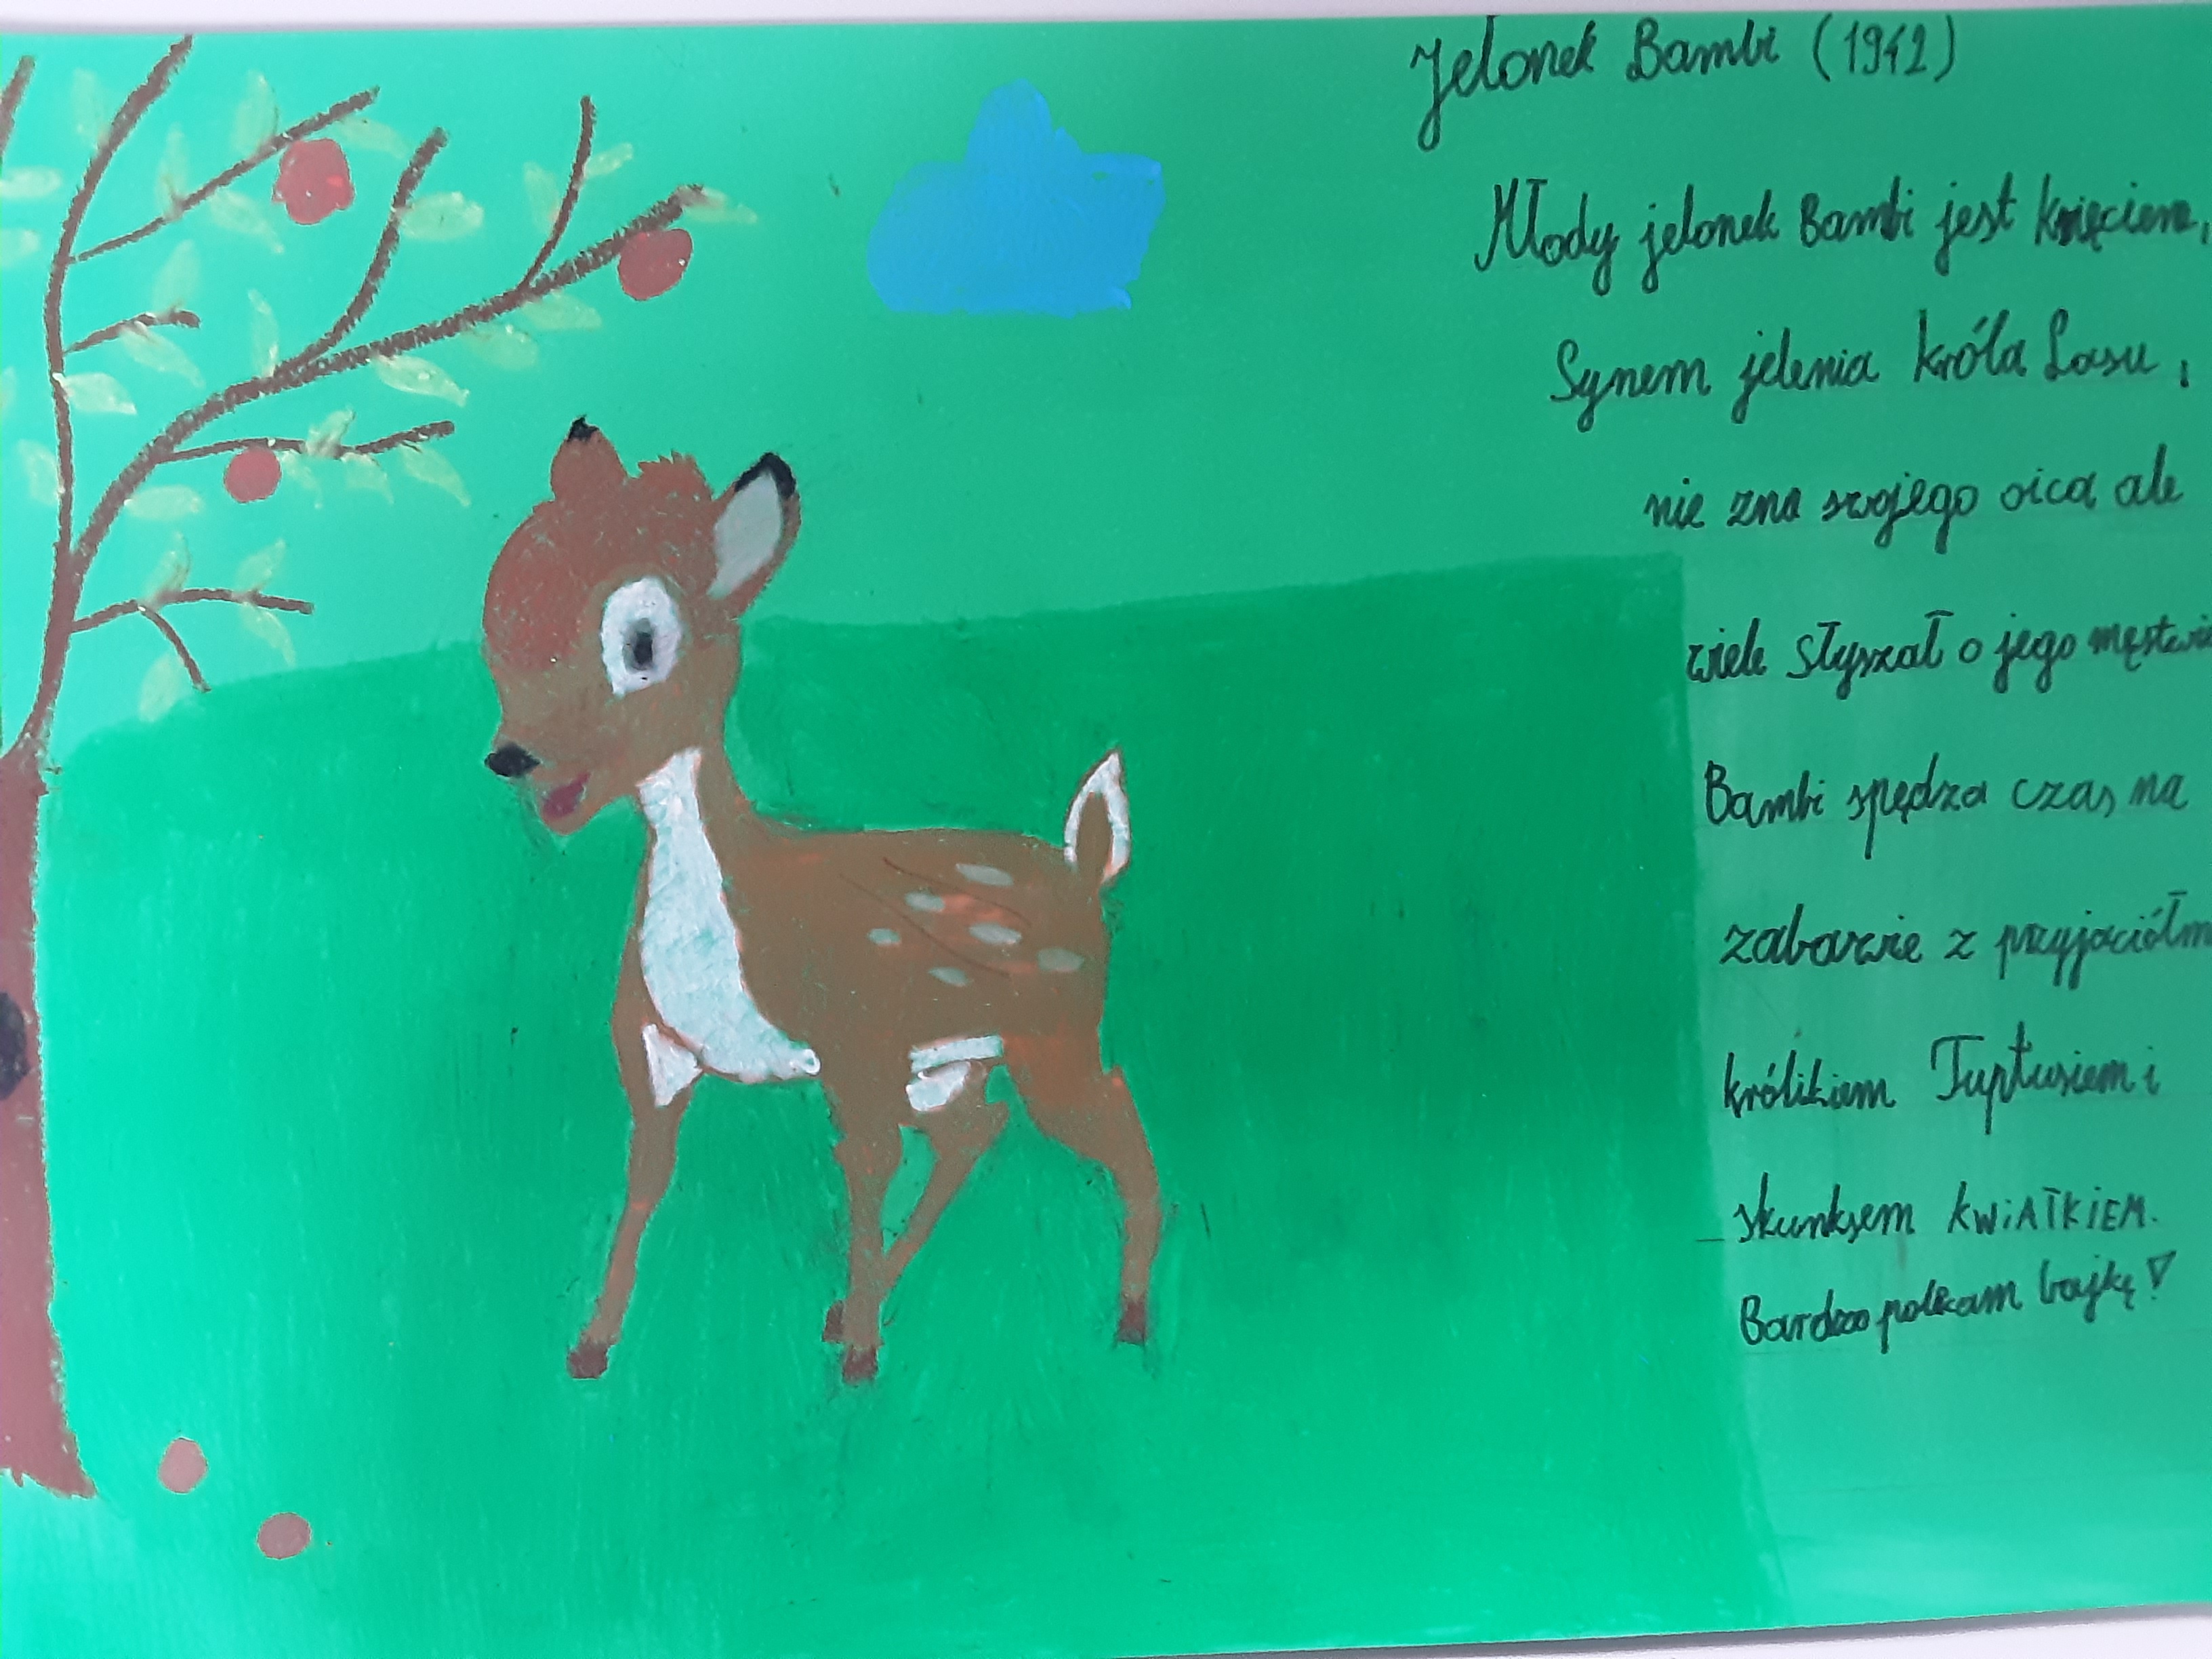 Jelonek Bambi (1942)
Młody jelonek Bambi jest księciem,
Synem jelenia króla Lasu,
nie zna swojego oica ale
wiele Słyszał o jego męstwie
Bambi spędza czas na
zabawie z przyjaciółm
królikiem Tuptusiem i
skunksem KWiATKiEM.
Bardzo polecam bajkę!